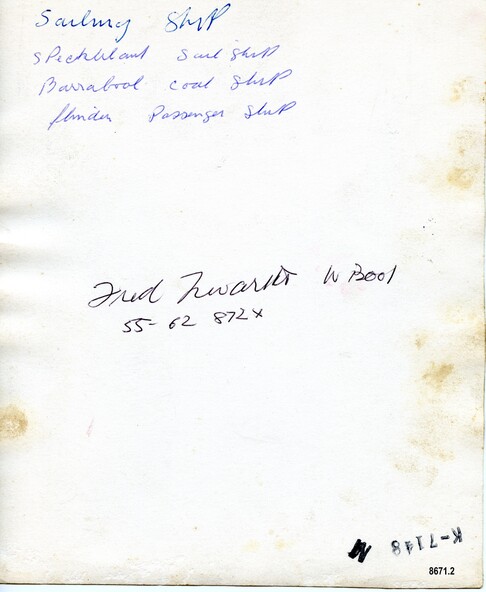 Sailing Ship
Speckulant Sail Ship
Barrabool coal Ship
flinders Passenger Ship
Fred W Bool
55-62 872x
K-7148 M
8671.2